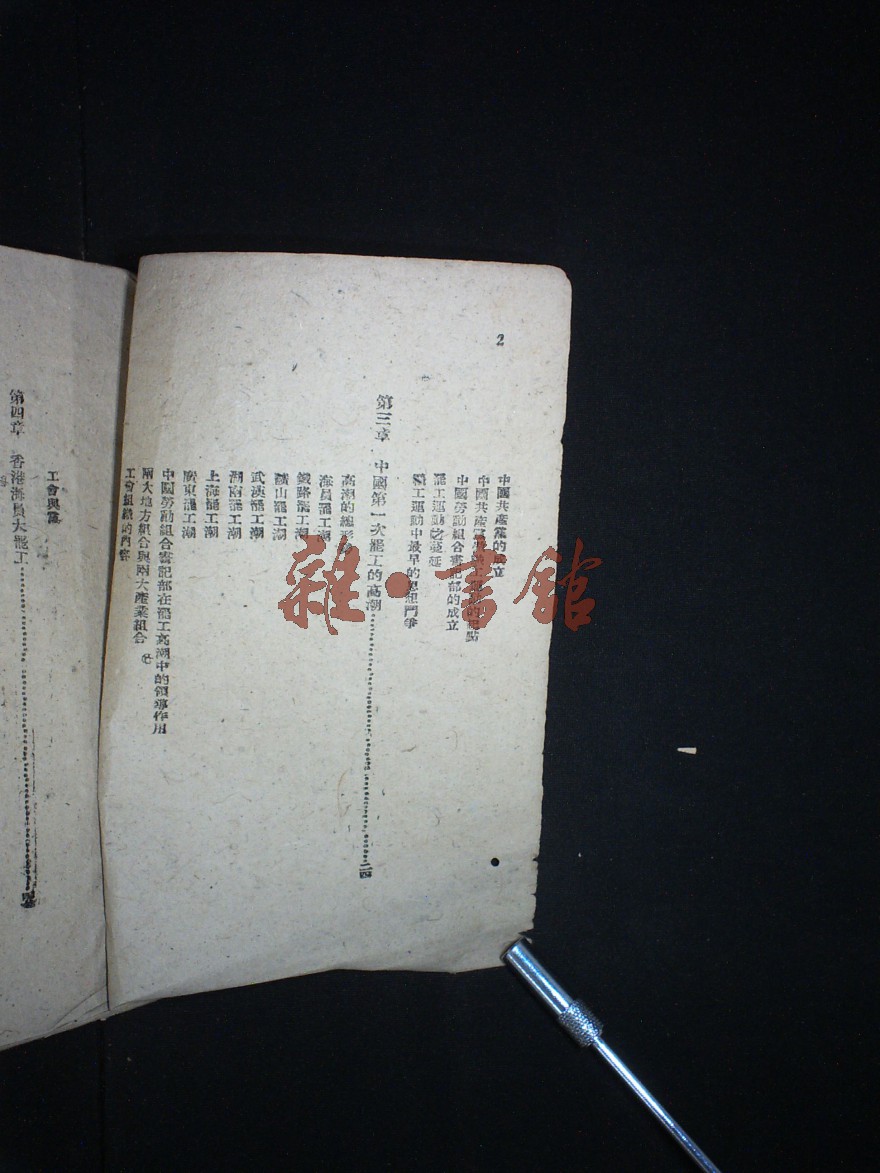 2
中國共產黨的成立
中國共產黨
中國勞動組合書記部的成立
罷工運動之蔓延
職工運動中最早的思想鬥爭
第三章 中國第一次罷工的高潮 二四
高潮的總形勢
海員罷工潮
鐵路罷工潮
礦山罷工潮
武漢罷工潮
湖南罷工潮
上海罷工潮
廣東罷工潮
中國勞動組合書記部在罷工高潮中的領導作用
兩大地方組合與兩大產業組合
工會組織的內容
工會與黨
第四章 香港海員大罷工
雜·書館